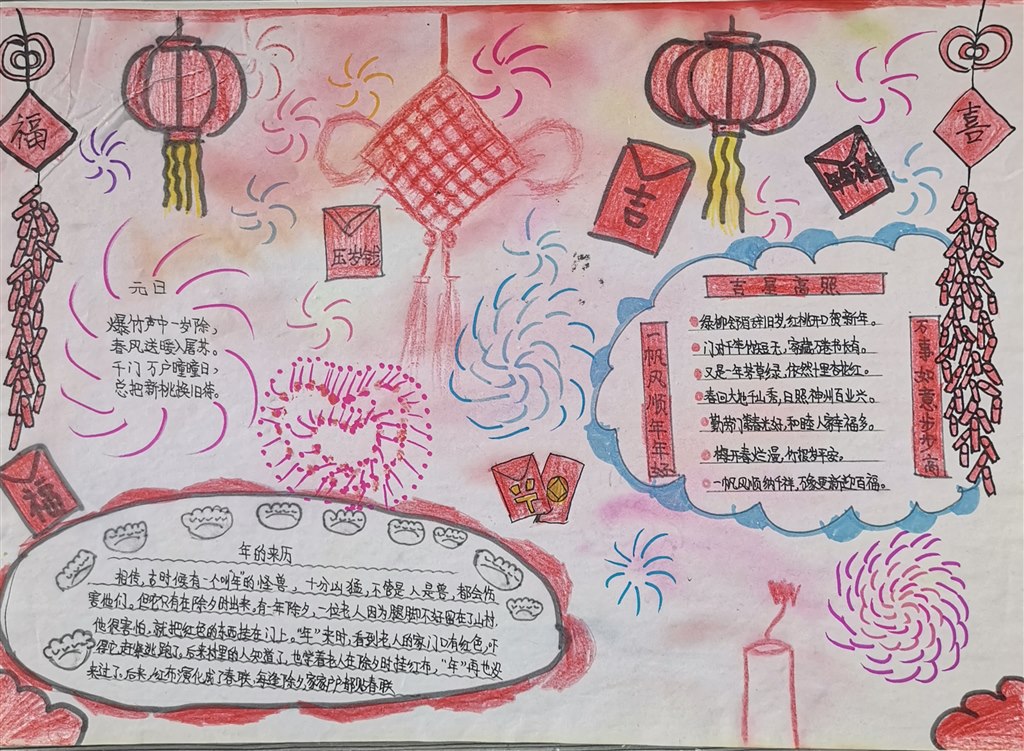 福
喜
吉
压岁钱
元日
爆竹声中一岁除，
春风送暖入屠苏。
千门万户曈曈日，
总把新桃换旧符。
吉星高照
一帆风顺年年好
万事如意步步高
绿柳舒眉辞旧岁，红桃开口贺新年。
门对千竿竹短无，家藏万卷书长有。
又是一年芳草绿，依然十里杏花红。
春回大地千山秀，日照神州百业兴。
勤劳门第春光好，和睦人家幸福多。
梅开春烂漫，竹报岁平安。
一帆风顺纳千祥，万象更新迎百福。
福
年的来历
相传，古时候有一个叫“年”的怪兽，十分凶猛，不管是人是兽，都会伤
害他们。但它只有在除夕时出来。有一年除夕，一位老人因为腿脚不好留在了山村，
他很害怕，就把红色的东西挂在门上。“年”来时，看到老人的家门口有红色，吓
得它赶紧逃跑了。后来村里的人知道了，也学着老人在除夕时挂红布，“年”再也没
来过了。后来，红布演化成了春联，每逢除夕家家户户都贴春联